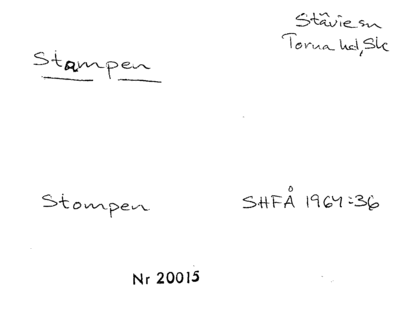 Stävie sn
Torna hd, Sk
Stampen
Stompen SHFÅ 1964:36
Nr 20015